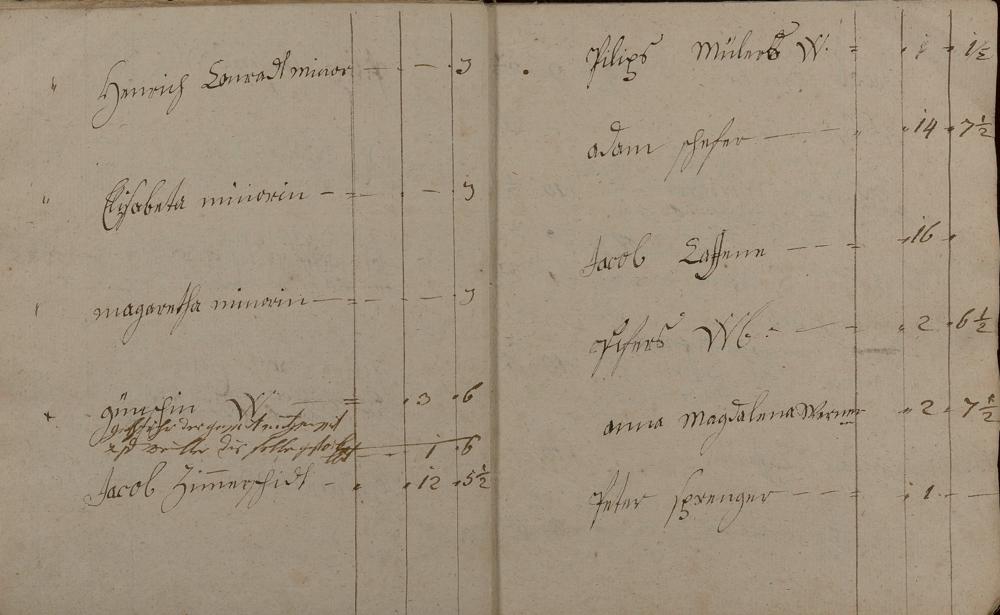 " Henrich Conradt minor — — 3
" Elisabeta minorin — = — — 3
" magaretha minorin — = — — 3
günschin W. = 3 6
1 6
Jacob Zimerschidt - 12 5½
Pilips Mülers W. = 1 1½
adam schefer — 14 7½
Jacob Laffene — — = 16
Schfers Wb. — = 2 6½
anna Magdalena Werner 2 7½
Peter sprenger — — = 1 —